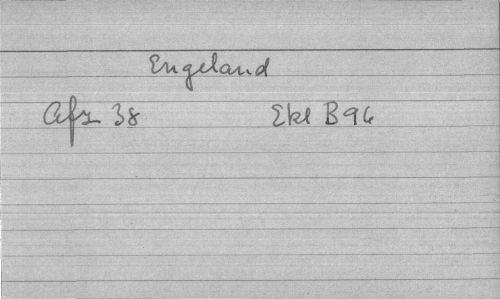 Engeland
Afz 38 Ekl B96